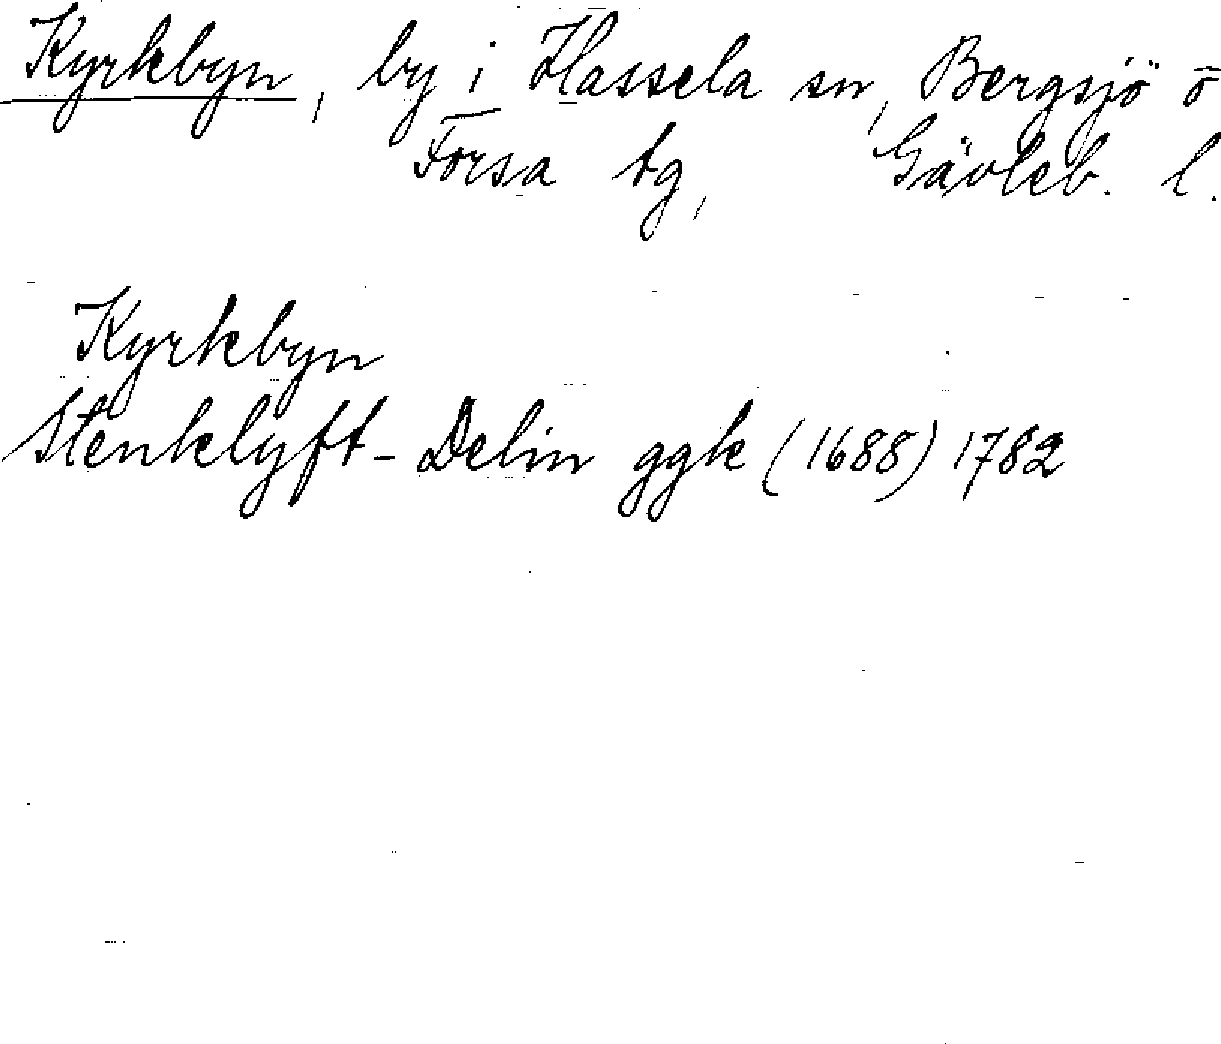 Kyrkbyn, by i Hassela sn, Bergsjö o
Forsa tg, Gävleb. l.
Kyrkbyn
Stenklyft-Delin ggk (1688) 1782